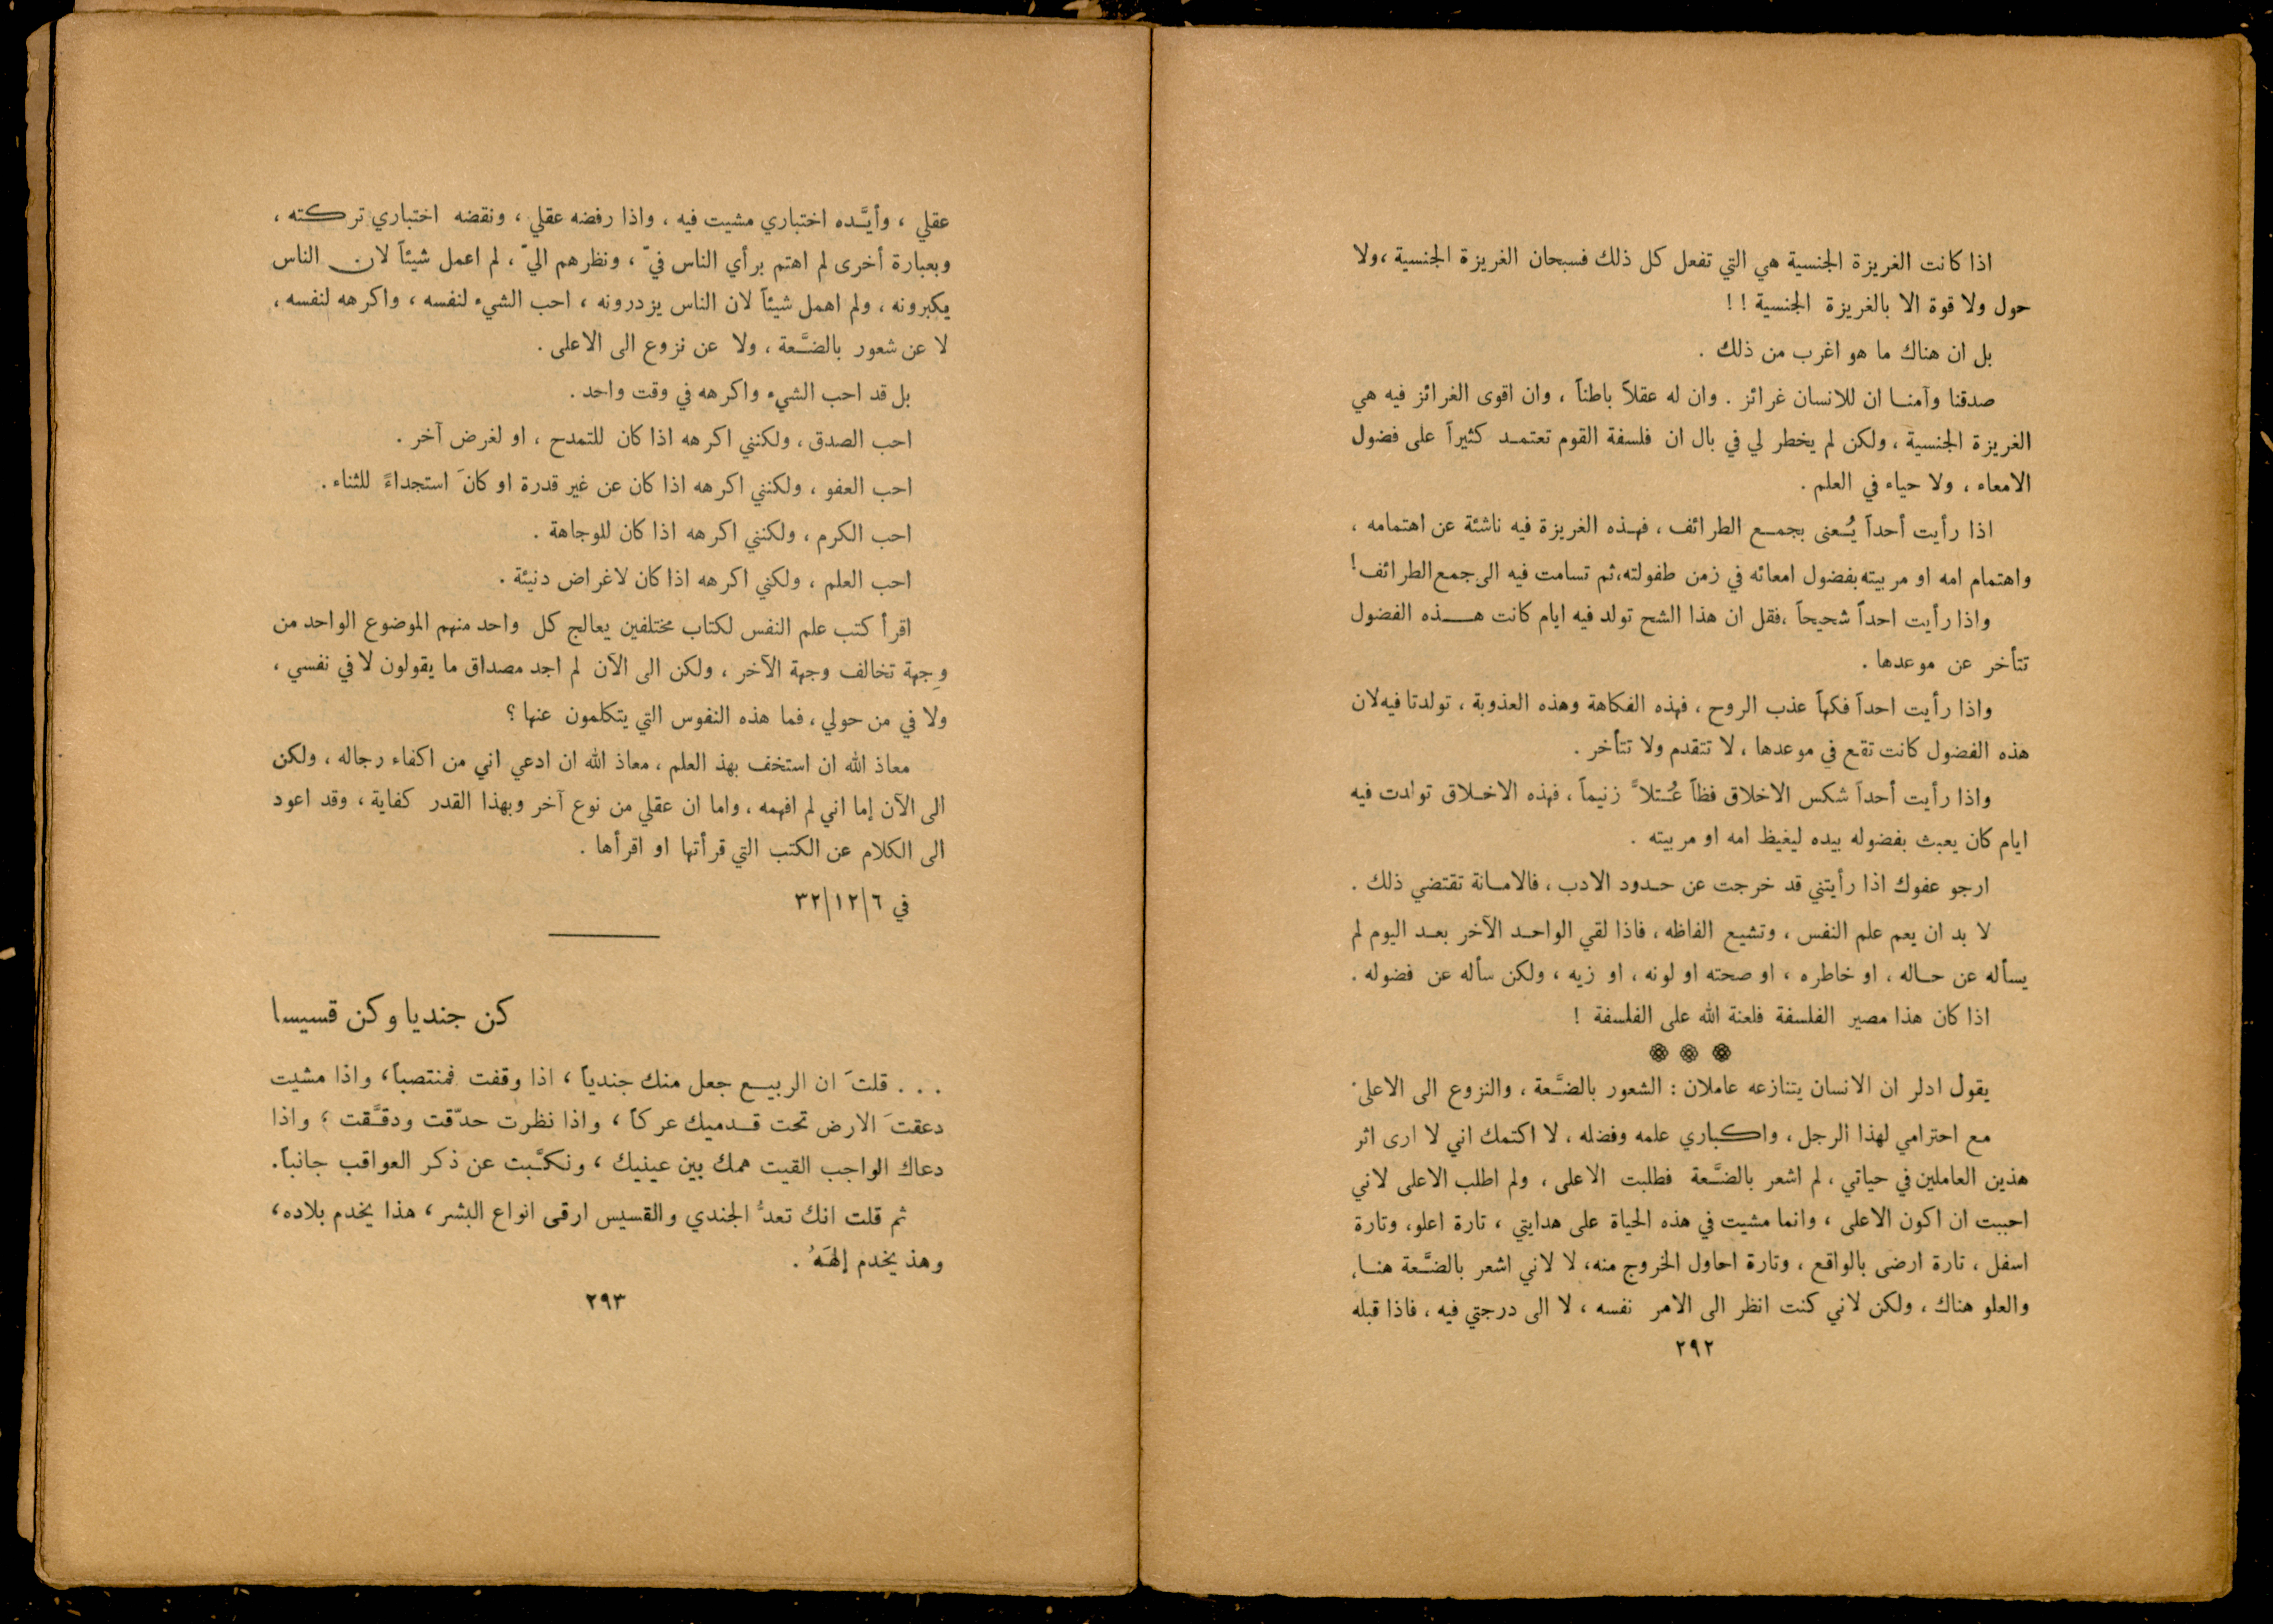 اذا كانت الغريزة الجنسية هي التي تفعل كل ذلك فسبحان الغريزة الجنسية ، ولا
حول ولا قوة الا بالغريزة الجنسية ! !
بل ان هناك ما هو اغرب من ذلك .
صدقنا وآمنا ان للانسان غرائز . وان له عقلاً باطناً ، وان اقوى الغرائز فيه هي
الغريزة الجنسية ، ولكن لم يخطر لي في بال ان فلسفة القوم تعتمد كثيراً على فضول
الامعاء ، ولا حياء في العلم .
اذا رأيت أحداً يُعنى بجمع الطرائف ، فهذه الغريزة فيه ناشئة عن اهتمامه ،
واهتمام امه او مربيته بفضول امعائه في زمن طفولته، ثم تسامت فيه الى جمع الطرائف !
واذا رأيت احداً شحيحاً ، فقل ان هذا الشح تولد فيه ايام كانت هذه الفضول
تتأخر عن موعدها .
واذا رأيت احداً فكهاً عذب الروح ، فهذه الفكاهة وهذه العذوبة ، تولدتا فيه لان
هذه الفضول كانت تقع في موعدها ، لا تتقدم ولا تتأخر .
واذا رأيت أحداً شكس الاخلاق فظاً عُتلاًّ زنيماً ، فهذه الاخلاق تولدت فيه
ايام كان يعبث بفضوله بيده ليغيظ امه او مربيته .
ارجو عفوك اذا رأيتني قد خرجت عن حدود الادب ، فالامانة تقتضي ذلك .
لا بد ان يعم علم النفس ، وتشيع الفاظه ، فاذا لقي الواحد الآخر بعد اليوم لم
يسأله عن حاله ، او خاطره ، او صحته او لونه ، او زيه ، ولكن سأله عن فضوله .
اذا كان هذا مصير الفلسفة فلعنة الله على الفلسفة !
يقول ادلر ان الانسان يتنازعه عاملان : الشعور بالضَّعة ، والنزوع الى الاعلى .
مع احترامي لهذا الرجل ، واكباري علمه وفضله ، لا اكتمك اني لا ارى اثر
هذين العاملين في حياتي ، لم اشعر بالضَّعة فطلبت الاعلى ، ولم اطلب الاعلى لاني
احببت ان اكون الاعلى ، وانما مشيت في هذه الحياة على هدايتي ، تارة اعلو ، وتارة
اسفل ، تارة ارضى بالواقع ، وتارة احاول الخروج منه ، لا لاني اشعر بالضَّعة هنا ،
والعلو هناك ، ولكن لاني كنت انظر الى الامر نفسه ، لا الى درجتي فيه ، فاذا قبله
٢٩٢
عقلي ، وأيَّده اختباري مشيت فيه ، واذا رفضه عقلي ، ونقضه اختباري تركته ،
وبعبارة أخرى لم اهتم برأي الناس فيّ ، ونظرهم اليّ ، لم اعمل شيئاً لان الناس
يكبرونه ، ولم اهمل شيئاً لان الناس يزدرونه ، احب الشيء لنفسه ، واكرهه لنفسه ،
لا عن شعور بالضَّعة ، ولا عن نزوع الى الاعلى .
بل قد احب الشيء واكرهه في وقت واحد .
احب الصدق ، ولكنني اكرهه اذا كان للتمدح ، او لغرض آخر .
احب العفو ، ولكنني اكرهه اذا كان عن غير قدرة او كانَ استجداءً للثناء .
احب الكرم ، ولكنني اكرهه اذا كان للوجاهة .
احب العلم ، ولكني اكرهه اذا كان لاغراض دنيئة .
اقرأ كتب علم النفس لكتاب مختلفين يعالج كل واحد منهم الموضوع الواحد من
وِجهة تخالف وجهة الآخر ، ولكن الى الآن لم اجد مصداق ما يقولون لا في نفسي ،
ولا في من حولي ، فما هذه النفوس التي يتكلمون عنها ؟
معاذ الله ان استخف بهذ العلم ، معاذ الله ان ادعي اني من اكفاء رجاله ، ولكن
الى الآن إما اني لم افهمه ، واما ان عقلي من نوع آخر وبهذا القدر كفاية ، وقد اعود
الى الكلام عن الكتب التي قرأتها او اقرأها .
في ٦/١٢/٣٢
كن جنديا وكن قسيسا
. . . قلتَ ان الربيع جعل منك جندياً ، اذا وقفت فمنتصباً ، واذا مشيت
دعقتَ الارض تحت قدميك عركاً ، واذا نظرت حدّقت ودقَّقت ، واذا
دعاك الواجب القيت همك بين عينيك ، ونكَّبت عن ذكر العواقب جانباً .
ثم قلت انك تعدُّ الجندي والقسيس ارقى انواع البشر ، هذا يخدم بلاده ،
وهذ يخدم إلهَهُ .
٢٩٣